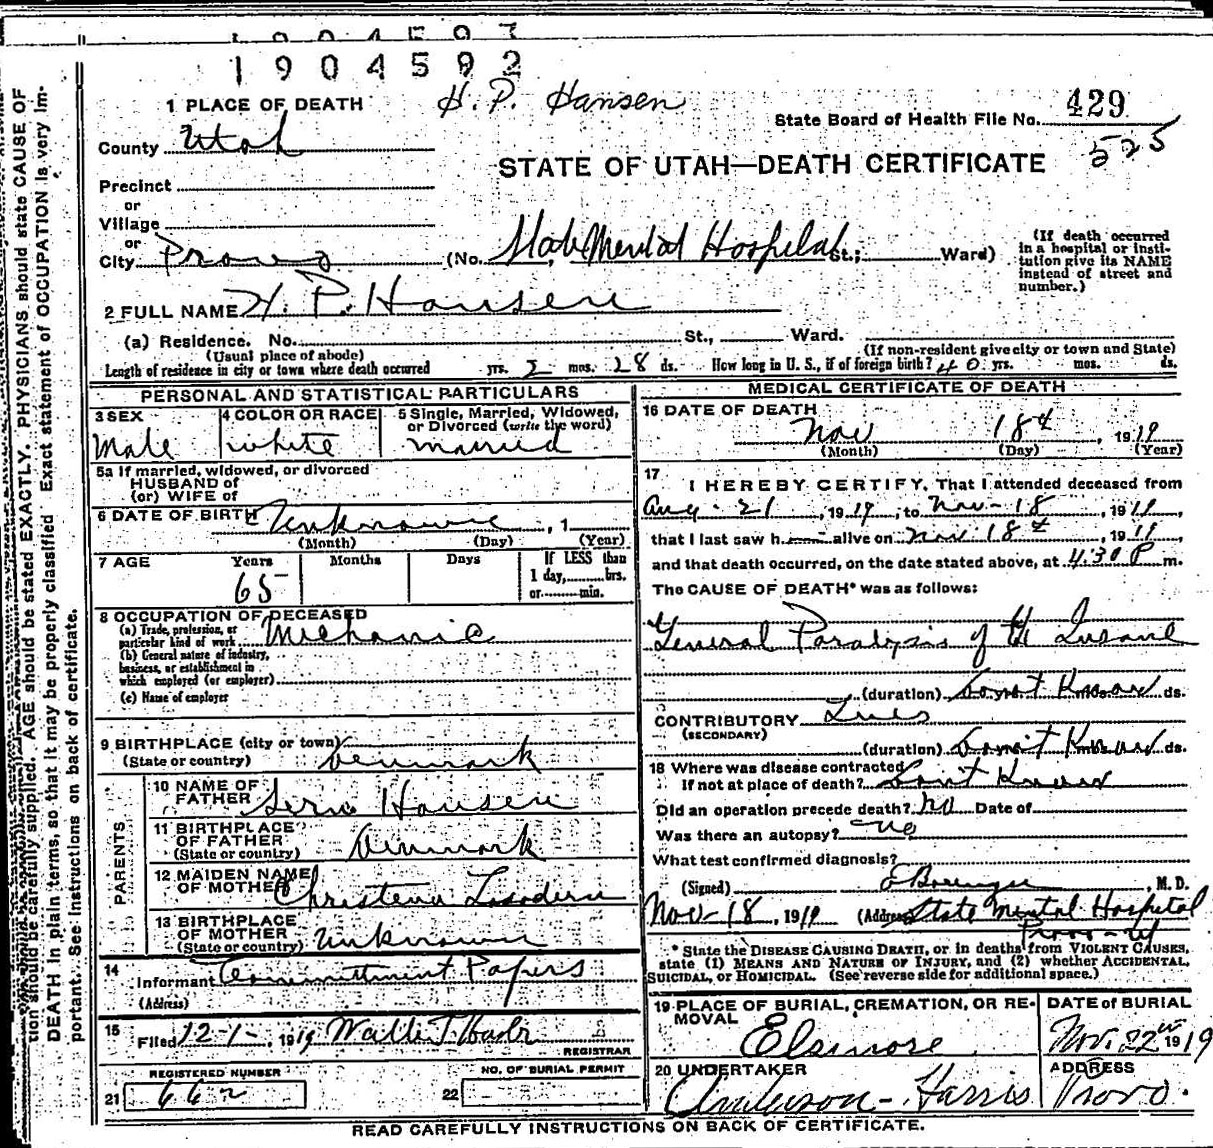 1904592
H. P. Hansen
State Board of Health File No. 429
525
STATE OF UTAH—DEATH CERTIFICATE
1 PLACE OF DEATH
County Utah
Precinct
or
Village
or
City Provo (No. State Mental Hospital St.; Ward)
(If death occurred in a hospital or insti-
tution give its NAME
instead of street and
number.)
2 FULL NAME H. P. Hansen
(a) Residence. No. St., Ward.
(Usual place of abode) (If non-resident give city or town and State)
Length of residence in city or town where death occurred yrs. 2 mos. 28 ds. How long in U. S., if of foreign birth? 40 yrs. mos. ds.
PERSONAL AND STATISTICAL PARTICULARS
3 SEX Male
4 COLOR OR RACE white
5 Single, Married, Widowed,
or Divorced (write the word)
married
5a If married, widowed, or divorced
HUSBAND of
(or) WIFE of
6 DATE OF BIRTH Unknown, 1
(Month) (Day) (Year)
7 AGE Years 65 Months Days If LESS than
1 day, hrs.
or min.
8 OCCUPATION OF DECEASED
(a) Trade, profession, or
particular kind of work Mechanic
(b) General nature of industry,
business, or establishment in
which employed (or employer)
(c) Name of employer
9 BIRTHPLACE (city or town)
(State or country) Denmark
PARENTS
10 NAME OF
FATHER Hansen
11 BIRTHPLACE
OF FATHER
(State or country) Denmark
12 MAIDEN NAME
OF MOTHER Christena
13 BIRTHPLACE
OF MOTHER
(State or country) Unknown
14
Informant Committment Papers
(Address)
15
Filed 12-1-, 1919 T.
REGISTRAR
REGISTERED NUMBER
21 662
NO. OF BURIAL PERMIT
22
MEDICAL CERTIFICATE OF DEATH
16 DATE OF DEATH
Nov 18th, 1919
(Month) (Day) (Year)
17
I HEREBY CERTIFY, That I attended deceased from
Aug. 21, 1919, to Nov-18, 1919,
that I last saw h alive on Nov. 18th, 1919,
and that death occurred, on the date stated above, at 4:30 P m.
The CAUSE OF DEATH* was as follows:
General Paralysis of the Insane
(duration) Don't Know ds.
CONTRIBUTORY Lues
(SECONDARY)
(duration) Don't Know ds.
18 Where was disease contracted
If not at place of death? Don't Know
Did an operation precede death? No Date of
Was there an autopsy? No
What test confirmed diagnosis?
(Signed) , M. D.
Nov-18, 1919 (Address) State Mental Hospital
Provo-Ut
* State the DISEASE CAUSING DEATH, or in deaths from VIOLENT CAUSES,
state (1) MEANS AND NATURE OF INJURY, and (2) whether ACCIDENTAL,
SUICIDAL, or HOMICIDAL. (See reverse side for additional space.)
19 PLACE OF BURIAL, CREMATION, OR RE-
MOVAL
Elsinore
DATE of BURIAL
Nov. 22nd 1919
20 UNDERTAKER
Anderson-Harris
ADDRESS
Provo.
READ CAREFULLY INSTRUCTIONS ON BACK OF CERTIFICATE.
tion should be carefully supplied. AGE should be stated EXACTLY. PHYSICIANS should state CAUSE OF
DEATH in plain terms, so that it may be properly classified. Exact statement of OCCUPATION is very im-
portant. See instructions on back of certificate.